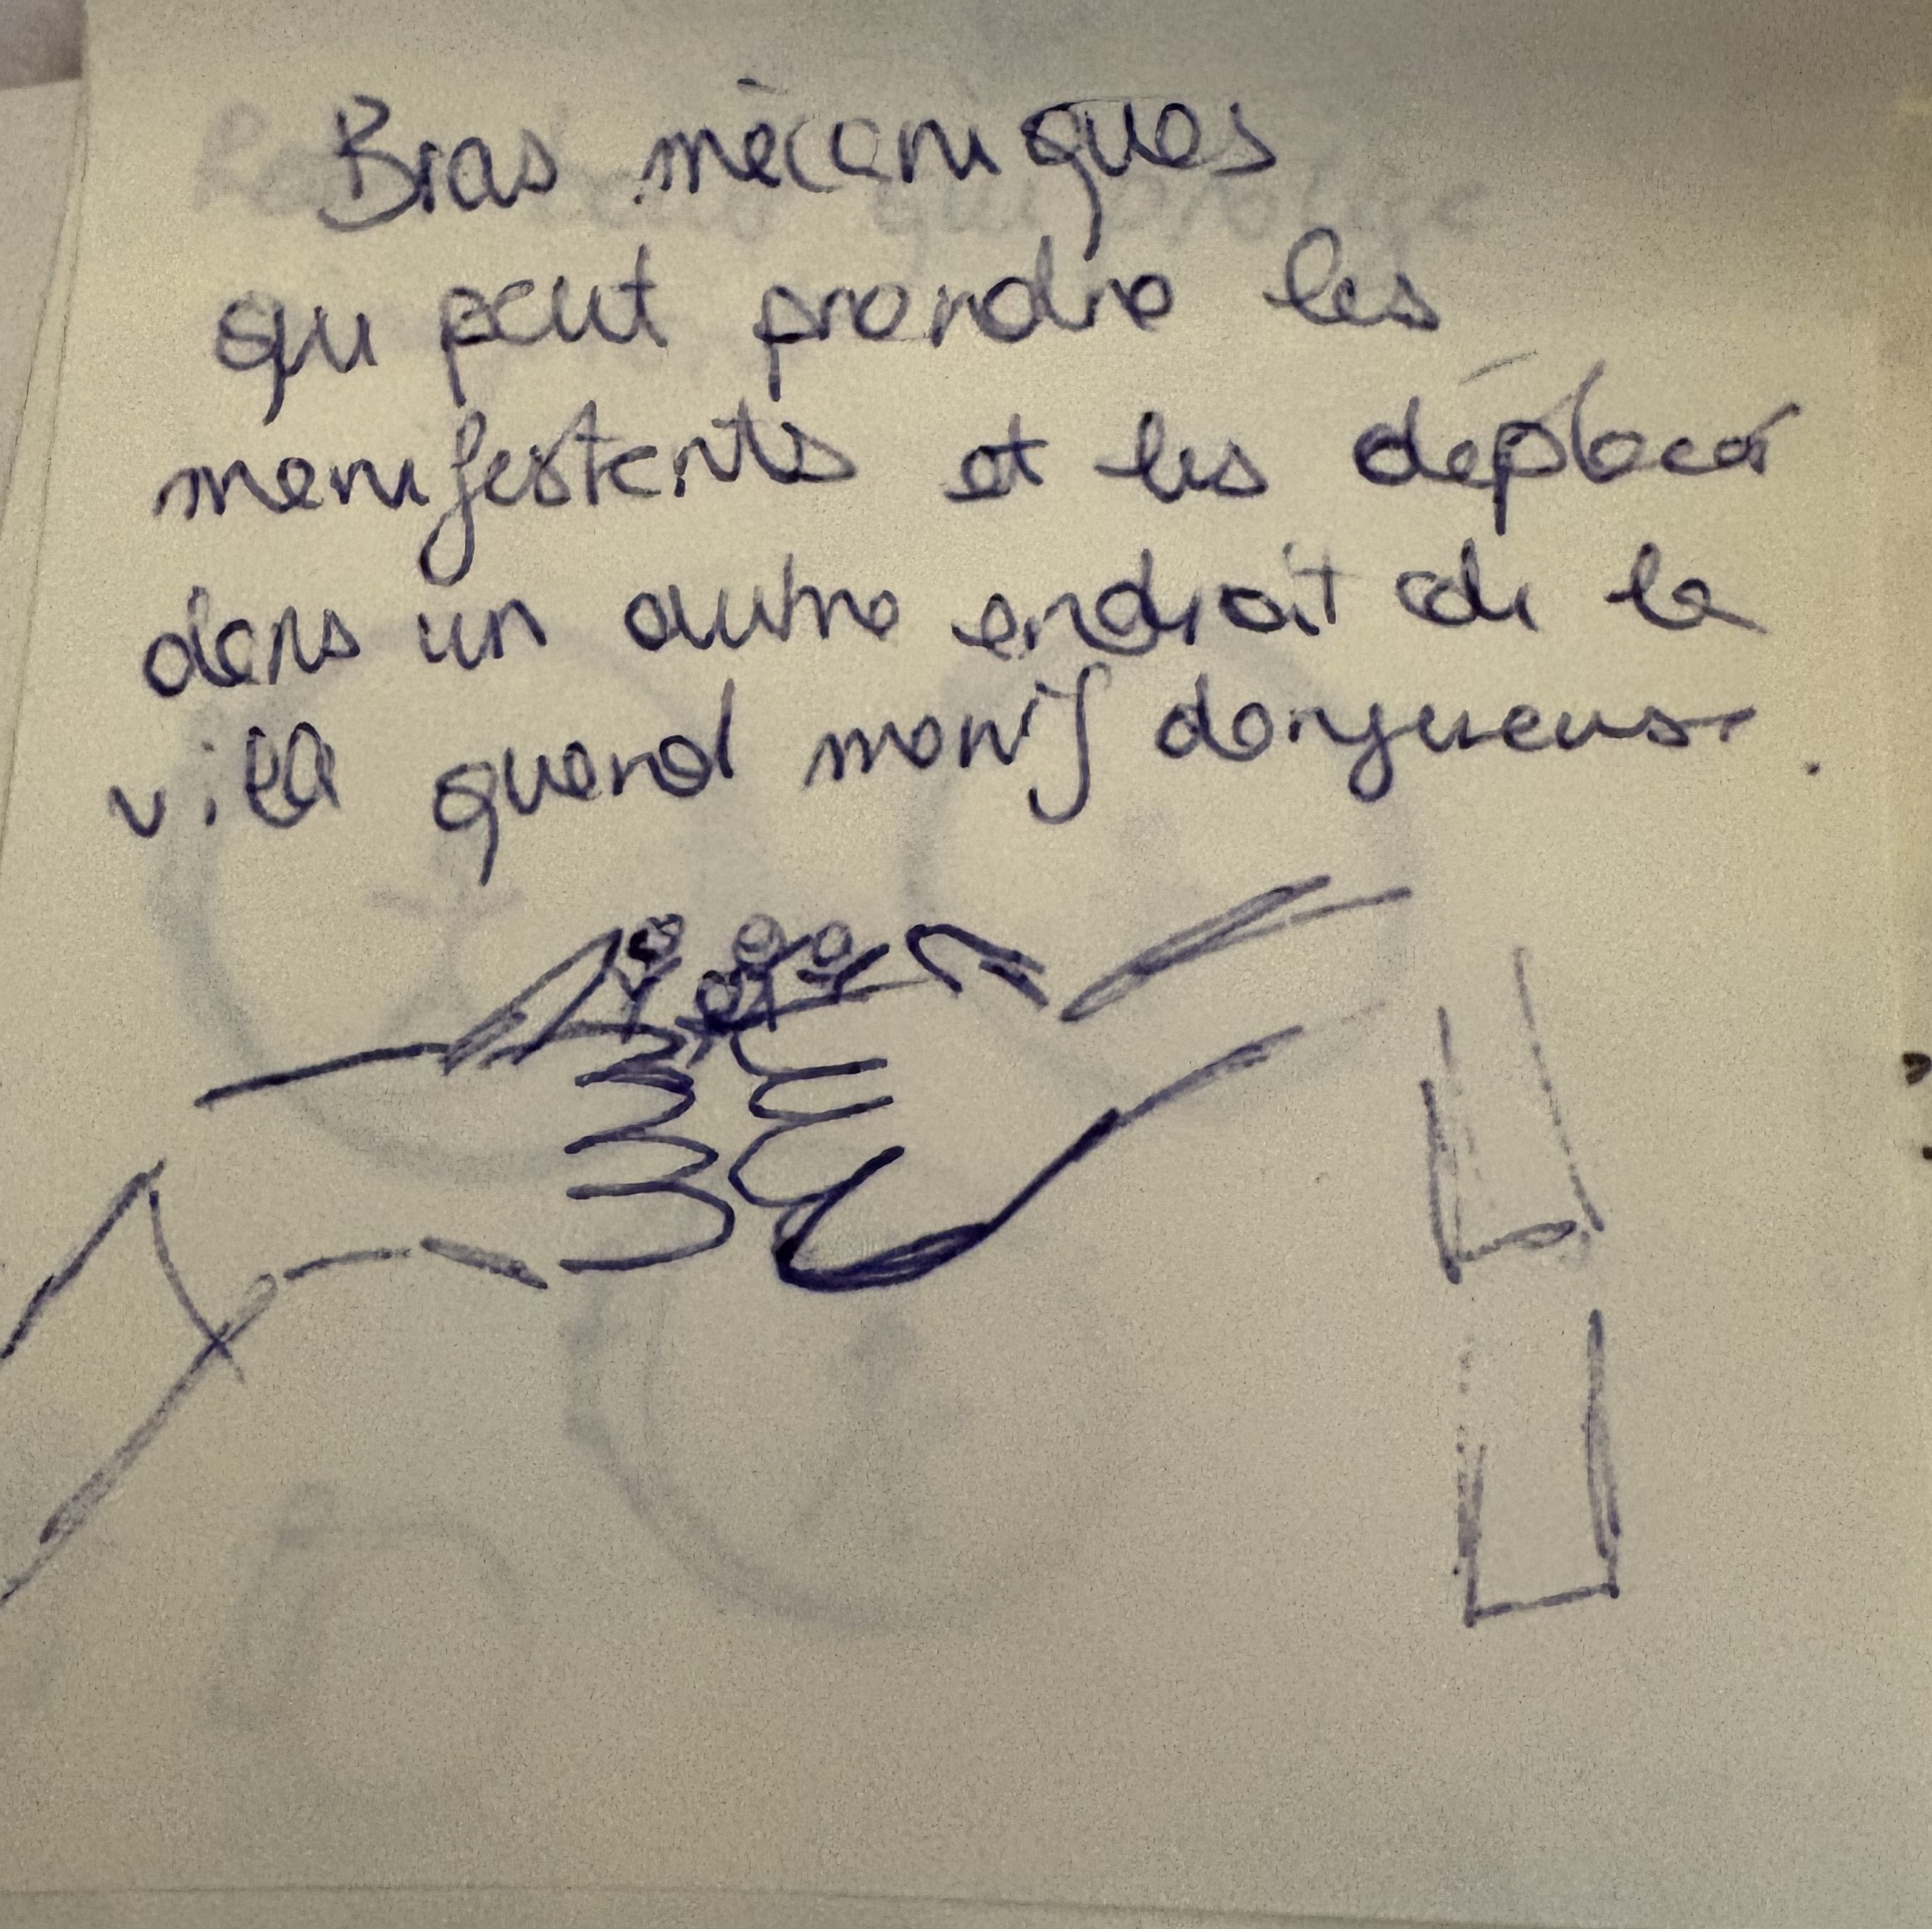 Bras mécaniques
qui peut prendre les
manifestants et les déplacer
dans un autre endroit de la
ville quand manif dangereuse.